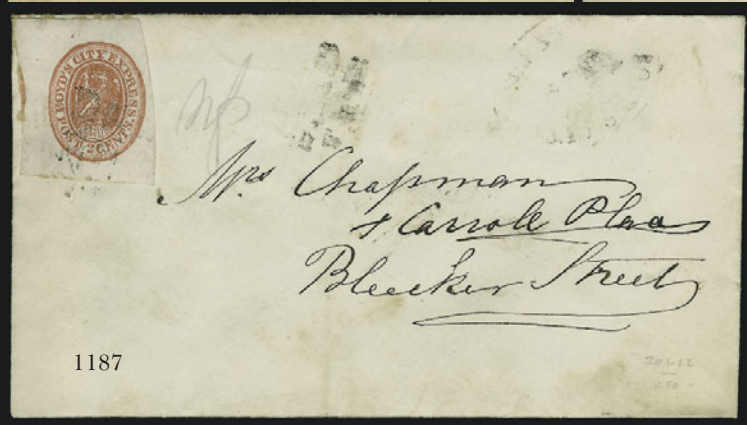 BOYD'S CITY EXPRESS
POST 2 CENTS
Mrs Chapman
Carroll Place
Bleecker Street
1187
20L12
250 -